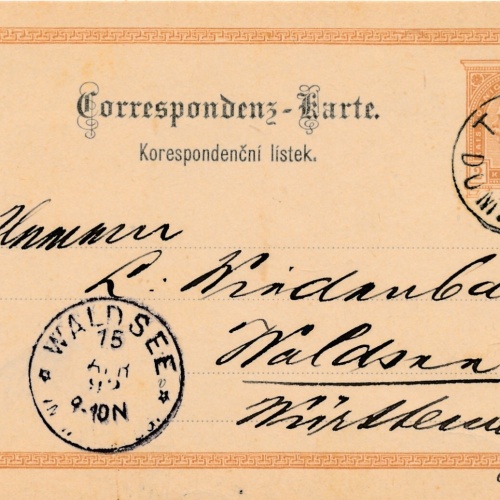 Correspondenz-Karte.
Korespondenční lístek.
L. Windenba
Waldsee
Württem
WALDSEE
15
APR
9-10N